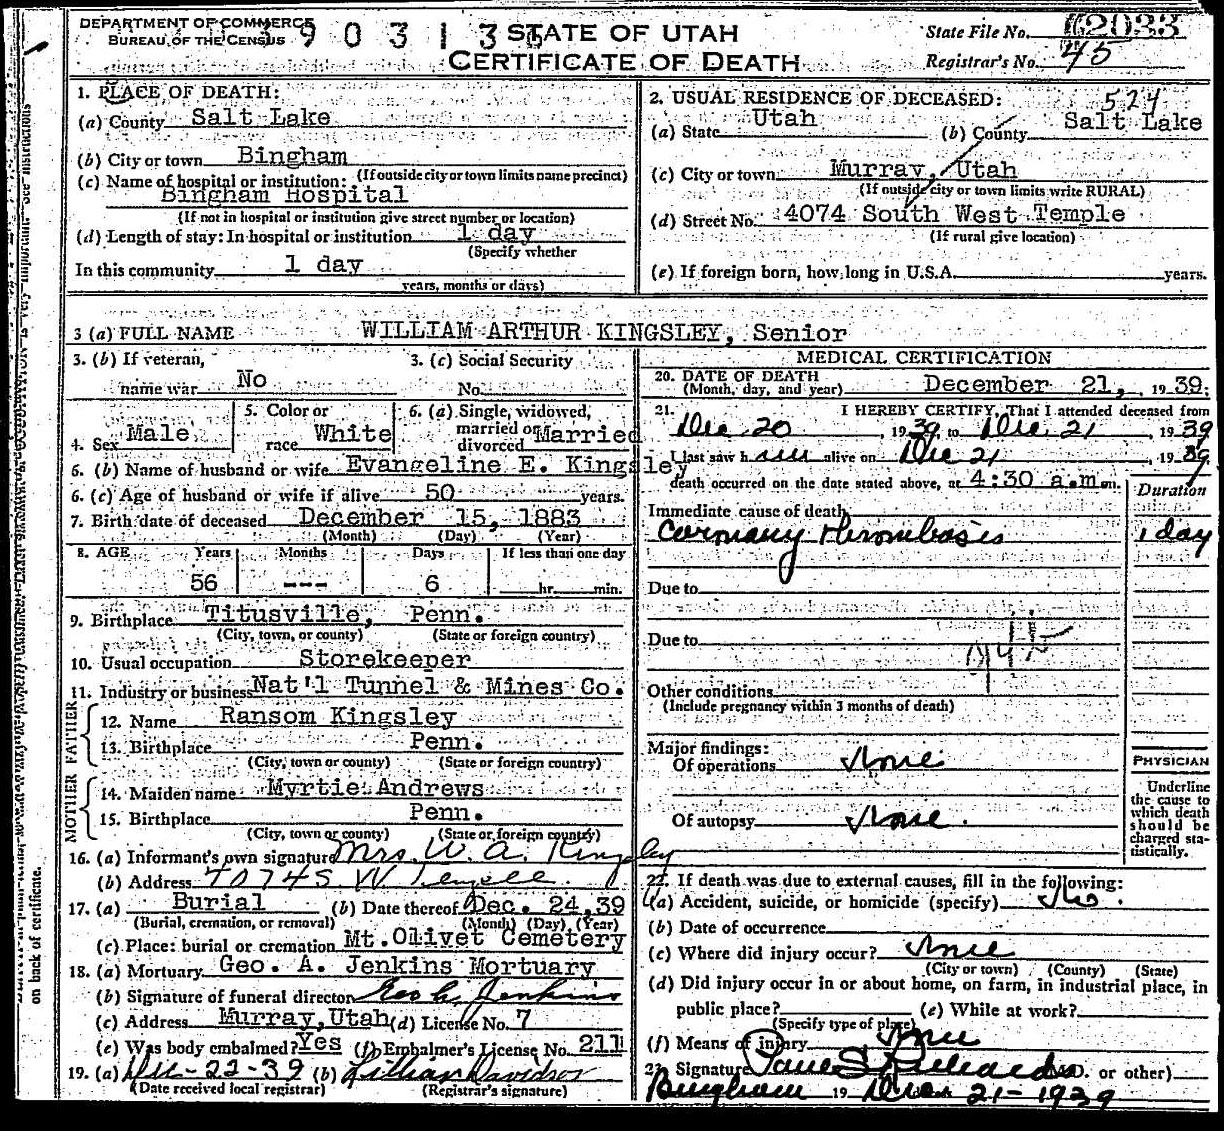 DEPARTMENT OF COMMERCE
BUREAU OF THE CENSUS
STATE OF UTAH
CERTIFICATE OF DEATH
State File No.
Registrar's No. 45
1. PLACE OF DEATH:
(a) County Salt Lake
(b) City or town Bingham
(If outside city or town limits name precinct)
(c) Name of hospital or institution:
Bingham Hospital
(If not in hospital or institution give street number or location)
(d) Length of stay: In hospital or institution 1 day
(Specify whether
In this community 1 day
years, months or days)
2. USUAL RESIDENCE OF DECEASED: 524
(a) State Utah (b) County Salt Lake
(c) City or town Murray, Utah
(If outside city or town limits write RURAL)
(d) Street No. 4074 South West Temple
(If rural give location)
(e) If foreign born, how long in U.S.A. years.
3 (a) FULL NAME WILLIAM ARTHUR KINGSLEY, Senior
3. (b) If veteran, name war No
3. (c) Social Security No.
4. Sex Male
5. Color or race White
6. (a) Single, widowed, married or divorced Married
6. (b) Name of husband or wife Evangeline E. Kingsley
6. (c) Age of husband or wife if alive 50 years.
7. Birth date of deceased December 15, 1883
(Month) (Day) (Year)
8. AGE Years Months Days If less than one day
56 --- 6 hr. min.
9. Birthplace Titusville, Penn.
(City, town, or county) (State or foreign country)
10. Usual occupation Storekeeper
11. Industry or business Nat'l Tunnel & Mines Co.
FATHER
12. Name Ransom Kingsley
13. Birthplace Penn.
(City, town or county) (State or foreign country)
MOTHER
14. Maiden name Myrtie Andrews
15. Birthplace Penn.
(City, town or county) (State or foreign country)
16. (a) Informant's own signature Mrs. W. A. Kingsley
(b) Address 4074 S W Temple.
17. (a) Burial (b) Date thereof Dec. 24, 39
(Burial, cremation, or removal) (Month) (Day) (Year)
(c) Place: burial or cremation Mt. Olivet Cemetery
18. (a) Mortuary Geo. A. Jenkins Mortuary
(b) Signature of funeral director Geo A. Jenkins
(c) Address Murray, Utah (d) License No. 7
(e) Was body embalmed? Yes (f) Embalmer's License No. 211
19. (a) Dec-22-39 (b) Lillian Davidson
(Date received local registrar) (Registrar's signature)
MEDICAL CERTIFICATION
20. DATE OF DEATH
(Month, day, and year) December 21, 1939.
21. I HEREBY CERTIFY, That I attended deceased from
Dec 20, 1939 to Dec. 21, 1939
I last saw him alive on Dec 21, 1939
death occurred on the date stated above, at 4:30 a.m. m.
Duration
Immediate cause of death
Coronary thrombosis 1 day
Due to
Due to
Other conditions
(Include pregnancy within 3 months of death)
Major findings:
Of operations None
Of autopsy None.
PHYSICIAN
Underline
the cause to
which death
should be
charged sta-
tistically.
22. If death was due to external causes, fill in the following:
(a) Accident, suicide, or homicide (specify) No.
(b) Date of occurrence
(c) Where did injury occur? None
(City or town) (County) (State)
(d) Did injury occur in or about home, on farm, in industrial place, in
public place? (e) While at work?
(Specify type of place)
(f) Means of injury None
23. Signature Paul S. Richards (M.D. or other)
Bingham Dec 21-1939
on back of certificate.